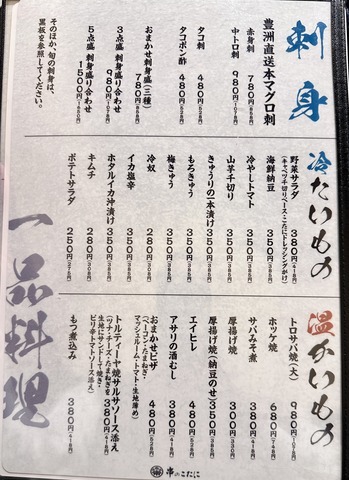 刺身
豊洲直送本マグロ刺
赤身刺 780円(858円)
中トロ刺 980円(1078円)
タコ刺 480円(528円)
タコポン酢 480円(528円)
おまかせ刺身盛(三種) 780円(858円)
3点盛 刺身盛り合わせ 980円(1078円)
5点盛 刺身盛り合わせ 1500円(1650円)
そのほか、旬の刺身は、
黒板を参照してください。
冷たいもの
野菜サラダ 380円(418円)
(キャベツ千切りベース・こたにドレッシングがけ)
海鮮納豆 350円(385円)
冷やしトマト 350円(385円)
山芋千切り 350円(385円)
きゅうりの一本漬け 350円(385円)
もろきゅう 350円(385円)
梅きゅう 350円(385円)
冷奴 300円
イカ塩辛 350円(385円)
ホタルイカ沖漬け 350円(385円)
キムチ 280円(308円)
ポテトサラダ 250円(275円)
温かいもの
トロサバ焼(大) 980円(1078円)
ホッケ焼 680円
サバみそ煮 380円(418円)
厚揚げ焼 300円
厚揚げ焼(納豆のせ) 350円(385円)
エイヒレ 480円(528円)
アサリの酒むし 380円(418円)
おまかせピザ 480円(528円)
(ベーコン・たまねぎ・
マッシュルーム・トマト・生地薄め)
トルティーヤ焼サルサソース添え 380円(418円)
(ツナ・チーズ・たまねぎを
生地にサンドして焼き・
ピリ辛トマトソース添え)
もつ煮込み 380円(418円)
一品料理
串のこたに